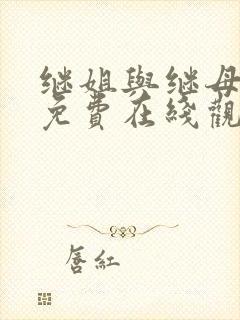 继姐與继母
免費在綫觀
唇紅